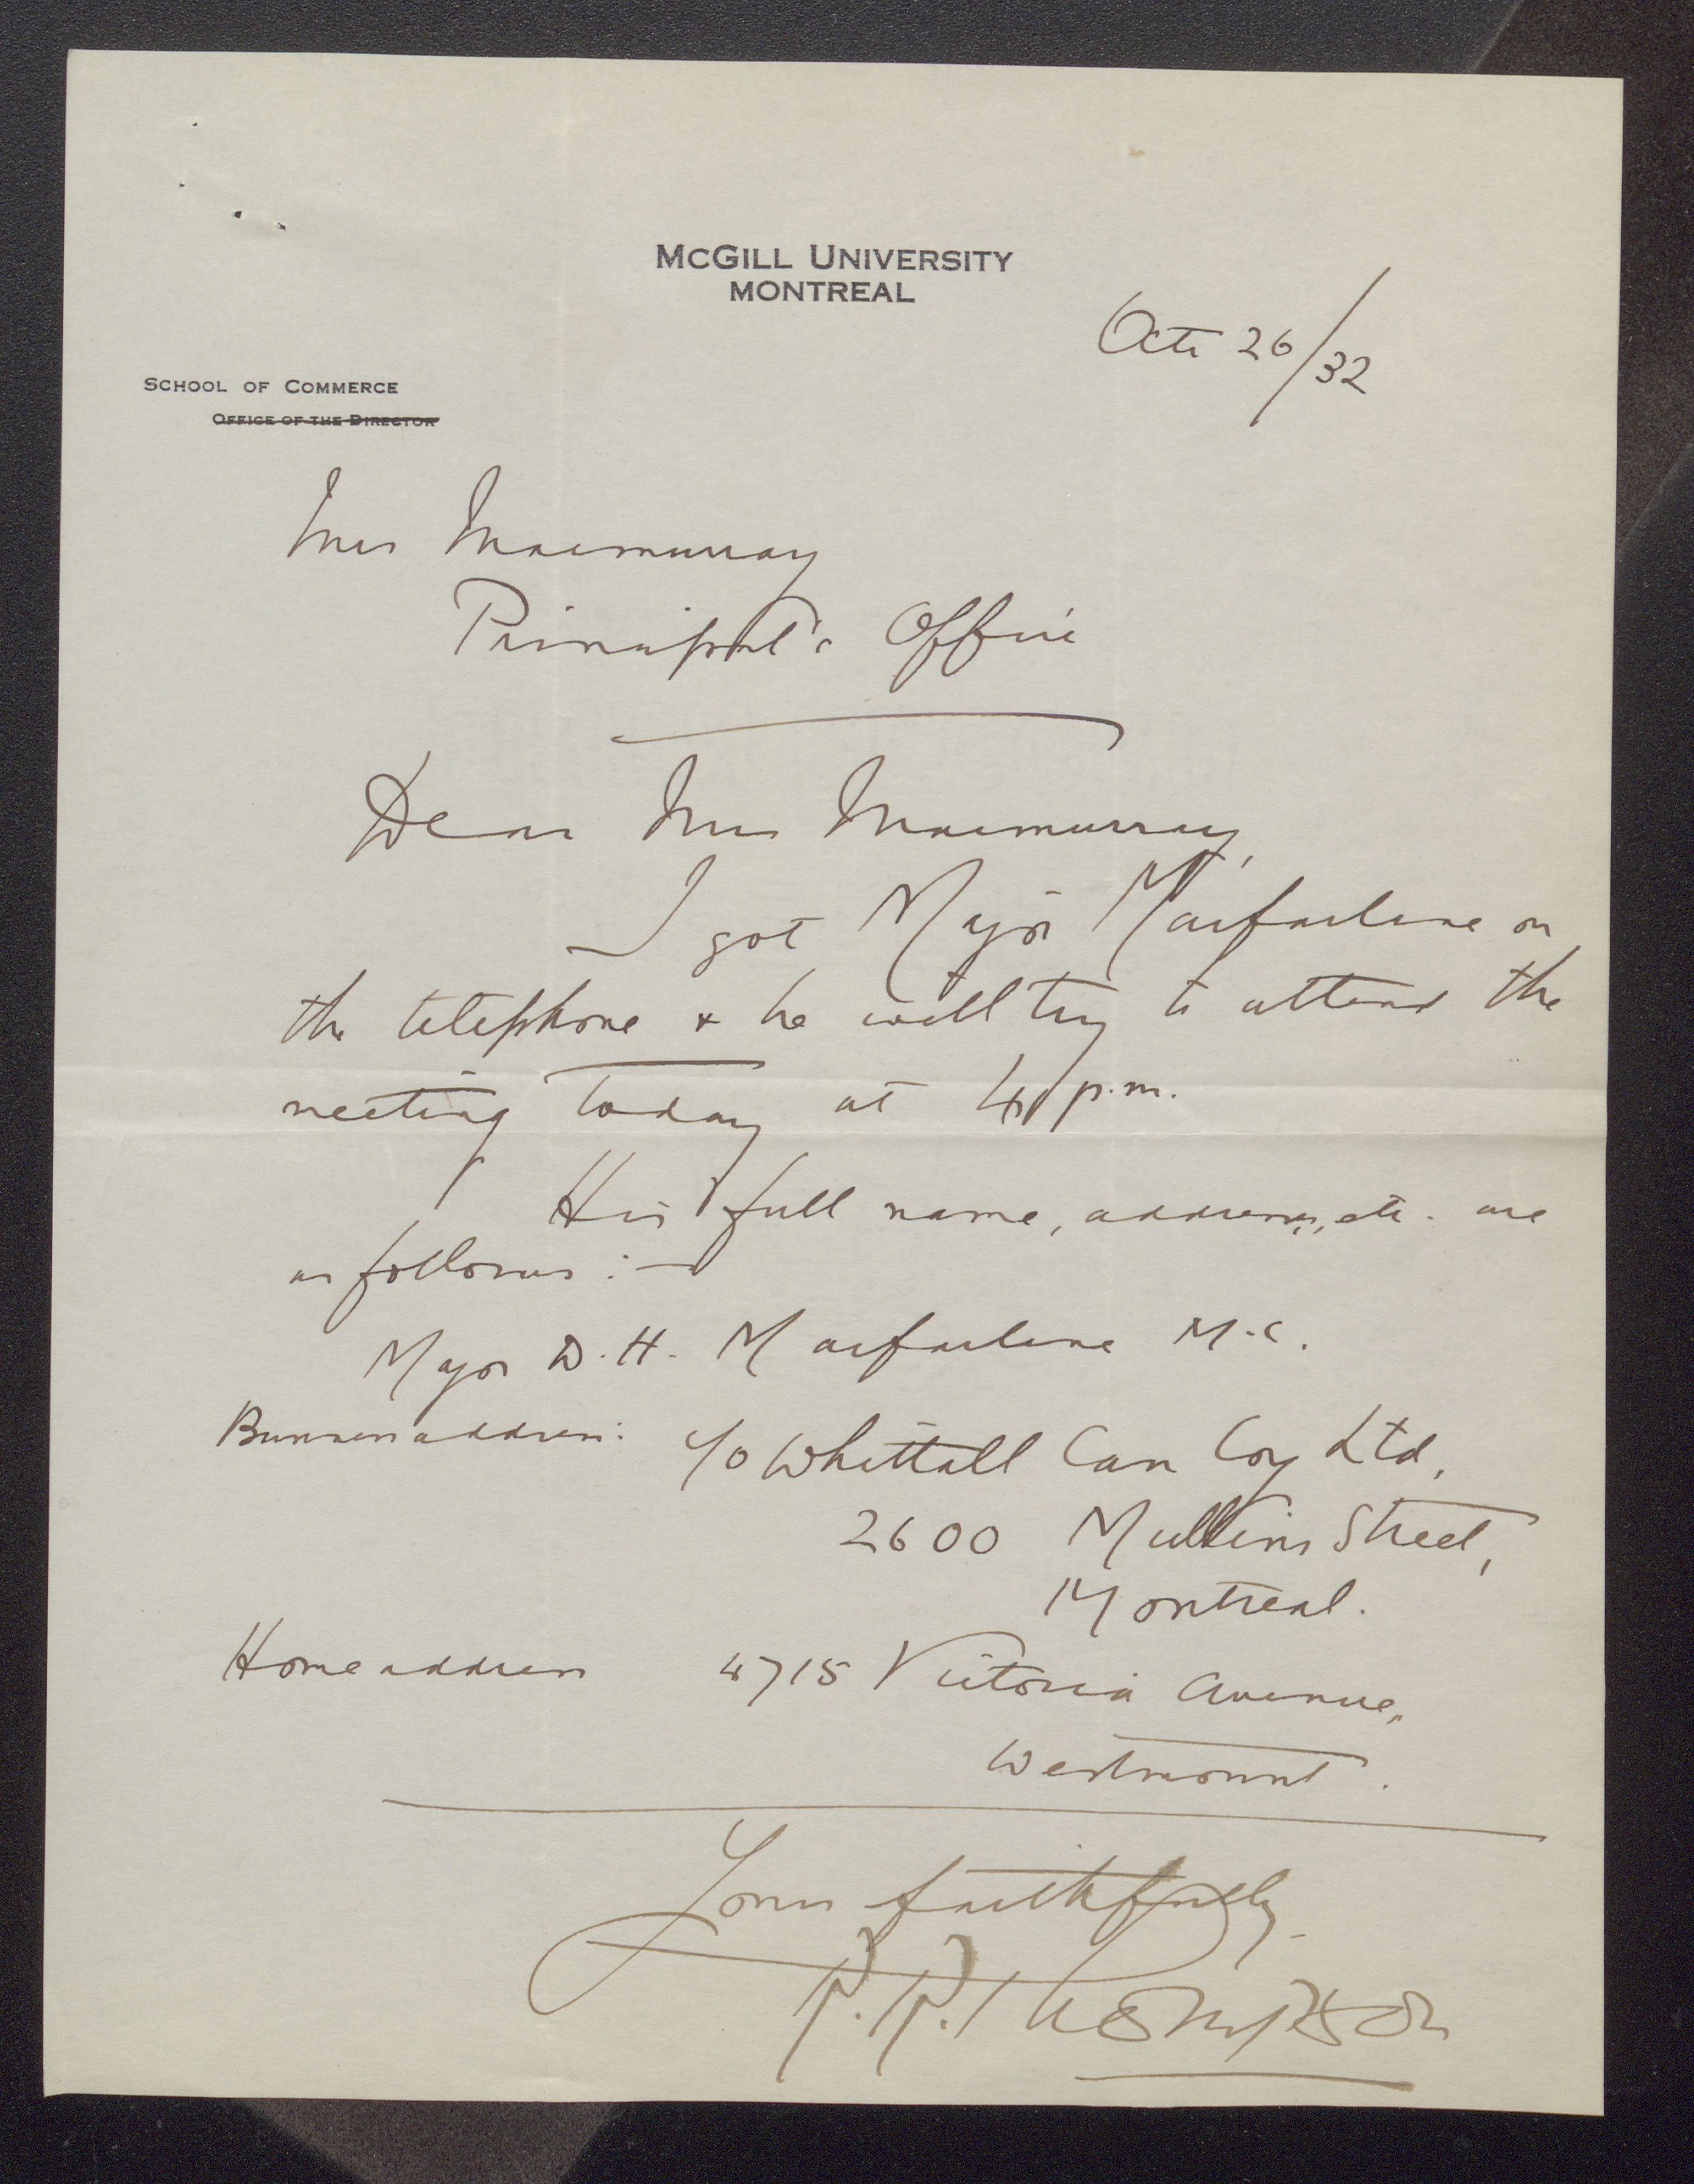 McGill University
Montreal
Oct. 26/32
School of Commerce
Office of the Director
Miss Macmurray
Principal's Office
Dear Miss Macmurray,
I got Major Macfarlane on
the telephone & he will try to attend the
meeting today at 4 p.m.
His full name, address, etc. are
as follows :—
Major D. H. Macfarlane M.C.
Business address: c/o Whittall Can Coy Ltd,
2600 Mullins Street,
Montreal.
Home address 4715 Victoria Avenue,
Westmount.
Yours faithfully
R.R. Thompson